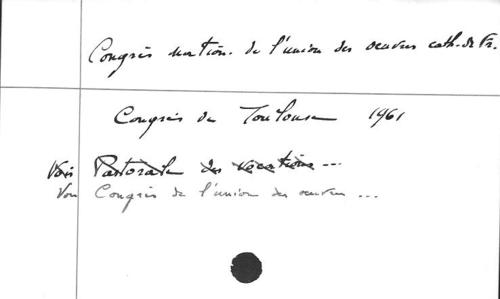 Congrès nation. de l'union des oeuvres cath. de Fr.
Congrès de Toulouse 1961
Voir Pastorale des vocations ...
Voir Congrès de l'union des oeuvres ...